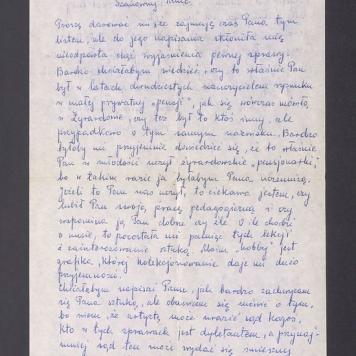 Szanowny Panie.
Proszę darować mi, że zajmuję czas Pana tym
listem, ale do jego napisania skłoniła mię
nieodparta chęć wyjaśnienia pewnej sprawy.
Bardzo chciałabym wiedzieć, czy to właśnie Pan
był w latach dwudziestych nauczycielem rysunku
w małej prywatnej „pensji", jak się wówczas mówiło,
w Żyrardowie, czy też był to ktoś inny, ale
przypadkowo o tym samym nazwisku. Bardzo
byłoby mi przyjemnie dowiedzieć się, że to właśnie
Pan w młodości uczył żyrardowskie „pensjonarki",
bo w takim razie ja byłabym Pana uczennicą.
Jeżeli to Pan nas uczył, to ciekawa jestem, czy
lubił Pan swoją pracę pedagogiczną i czy
wspomina ją Pan dobrze czy źle. O ile chodzi
o mnie, to pozostała mi pamięć tych lekcji
i zainteresowanie sztuką. Moim „hobby" jest
grafika, której kolekcjonowanie daje mi dużo
przyjemności.
Chciałabym napisać Panu, jak bardzo zachwycam
się Pana sztuką, ale obawiam się mówić o tym,
bo wiem, że artystę może urazić sąd kogoś,
kto w tych sprawach jest dyletantem, a przynaj-
mniej sąd ten może wydać się śmieszny